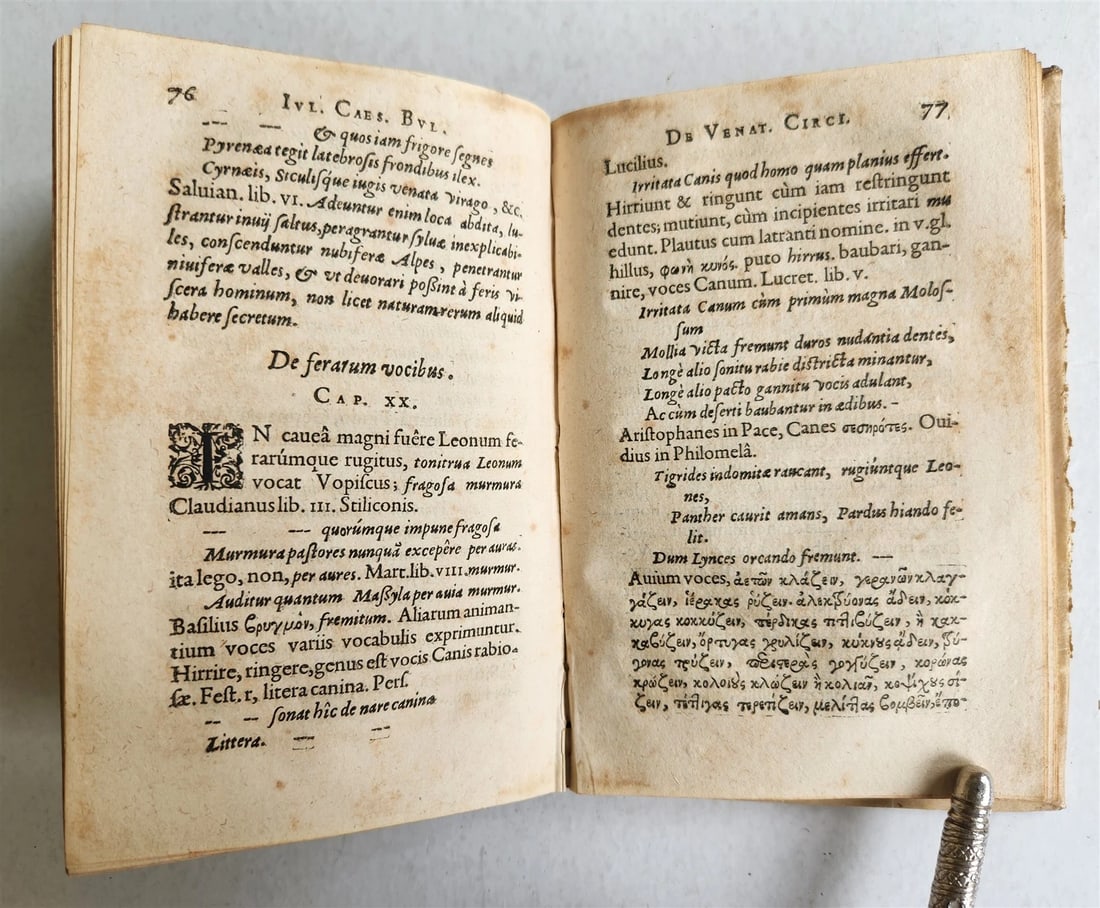 76
IVL. CAES. BVL.
— — & quos iam frigore segnes
Pyrenæa tegit latebrosis frondibus ilex.
Cyrnæis, Siculisq́ue iugis venata virago, &c.
Saluian. lib. VI. Adeuntur enim loca abdita, lu-
strantur inuij saltus, peragrantur syluæ inexplicabi-
les, conscenduntur nubiferæ Alpes, penetrantur
niuiferæ valles, & vt deuorari possint à feris vi-
scera hominum, non licet naturam rerum aliquid
habere secretum.
De ferarum vocibus.
CAP. XX.
IN caueâ magni fuêre Leonum fe-
rarúmque rugitus, tonitrua Leonum
vocat Vopiscus; fragosa murmura
Claudianus lib. III. Stiliconis.
— — quorúmque impune fragosa
Murmura pastores nunquã excepêre per auras.
ita lego, non, per aures. Mart. lib. VIII. murmur.
Auditur quantum Massyla per auia murmur.
Basilius βρυγμὸν, fremitum. Aliarum animan-
tium voces variis vocabulis exprimuntur.
Hirrire, ringere, genus est vocis Canis rabio-
sæ. Fest. r, litera canina. Pers.
— — sonat hîc de nare canina
Littera. — —
DE VENAT. CIRCI. 77
Lucilius.
Irritata Canis quod homo quam planius effert.
Hirriunt & ringunt cùm iam restringunt
dentes; mutiunt, cùm incipientes irritari mu
edunt. Plautus cum latranti nomine. in v. gl.
hillus, φωνὴ κυνός. puto hirrus. baubari, gan-
nire, voces Canum. Lucret. lib. v.
Irritata Canum cùm primùm magna Molos-
sum
Mollia victa fremunt duros nudantia dentes,
Longè alio sonitu rabie districta minantur,
Longè alio pacto gannitu vocis adulant,
Ac cùm deserti baubantur in ædibus. –
Aristophanes in Pace, Canes σεσηρότες. Oui-
dius in Philomelâ.
Tigrides indomitæ rancant, rugiúntque Leo-
nes,
Panther caurit amans, Pardus hiando fe-
lit.
Dum Lynces orcando fremunt. —
Auium voces, ἀετῶν κλάζειν, γερανῶν κλαγ-
γάζειν, ἱέρακας ῥύζειν. ἀλεκτρύονας ἄδειν, κόκ-
κυγας κοκκύζειν, πέρδικας τιττιβύζειν, ἢ κακ-
καβύζειν, ὄρτυγας γρυλίζειν, κύκνους ἄδειν, τρύ-
γονας τρύζειν, περιστερὰς γογγύζειν, κορώνας
κρώζειν, κολοιοὺς κλώζειν ἢ κολιᾶν, κοψίχους σί-
ζειν, τέττιγας τερετίζειν, μελίττας βομβεῖν, ἔπο-